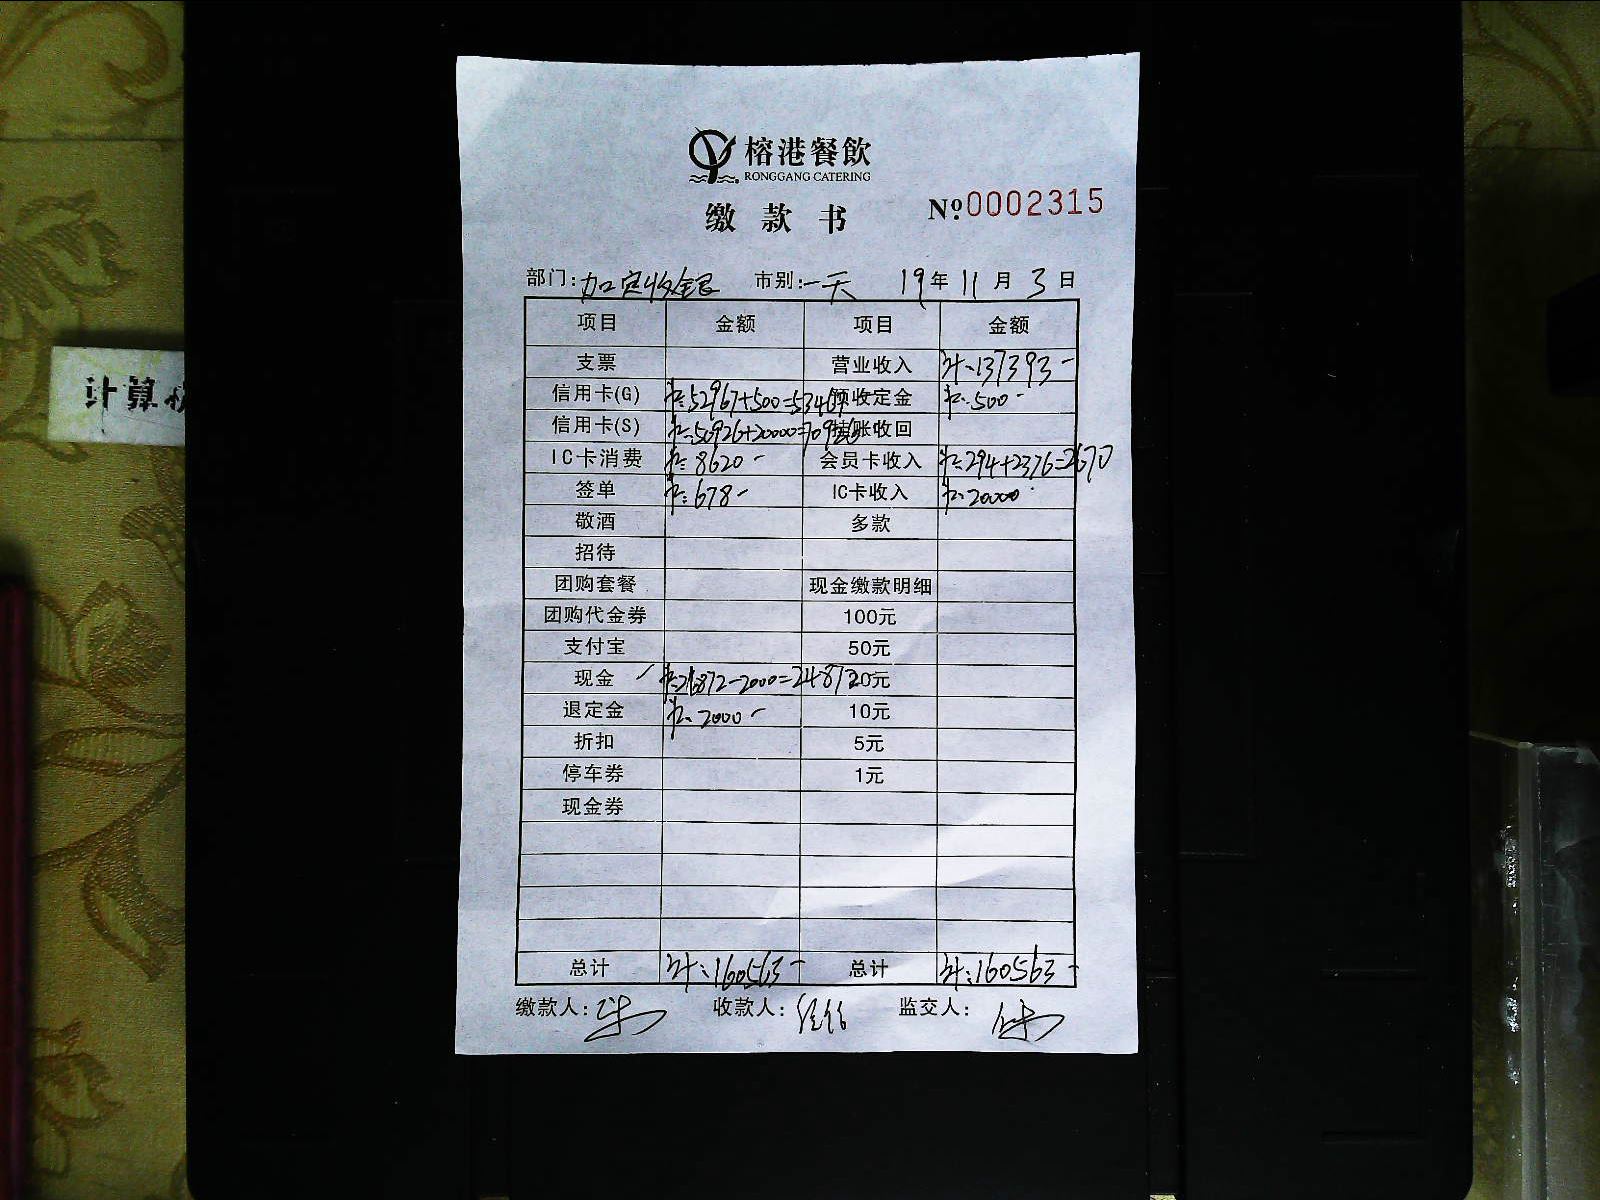 榕港餐飲
RONGGANG CATERING
缴款书
№0002315
部门:加定收银 市别:一天 19年11月3日
项目 金额 项目 金额
支票 营业收入 计:137393-
信用卡(G) 52967+500=53467 预收定金 500-
信用卡(S) 50926+20000=70926 挂账收回
IC卡消费 8620- 会员卡收入 294+2376=2670
签单 678- IC卡收入 20000-
敬酒 多款
招待
团购套餐 现金缴款明细
团购代金券 100元
支付宝 50元
现金 26872-2000=24872 20元
退定金 2000- 10元
折扣 5元
停车券 1元
现金券
总计 计:160563- 总计 计:160563-
缴款人: 收款人: 监交人:
计算